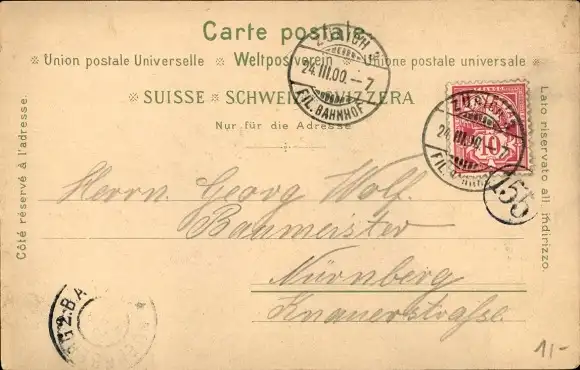 Carte postale.
Union postale Universelle Weltpostverein Unione postale universale
SUISSE SCHWEIZ SVIZZERA
Nur für die Adresse
Côté réservé à l'adresse.
Lato riservato all'indirizzo.
ZÜRICH
24.III.00.-7
FIL. BAHNHOF
ZÜRICH
24.III.00.-7
10
155
Herrn Georg Wolf.
Baumeister
Nürnberg
Knauerstraße.
2.B.A
1/-